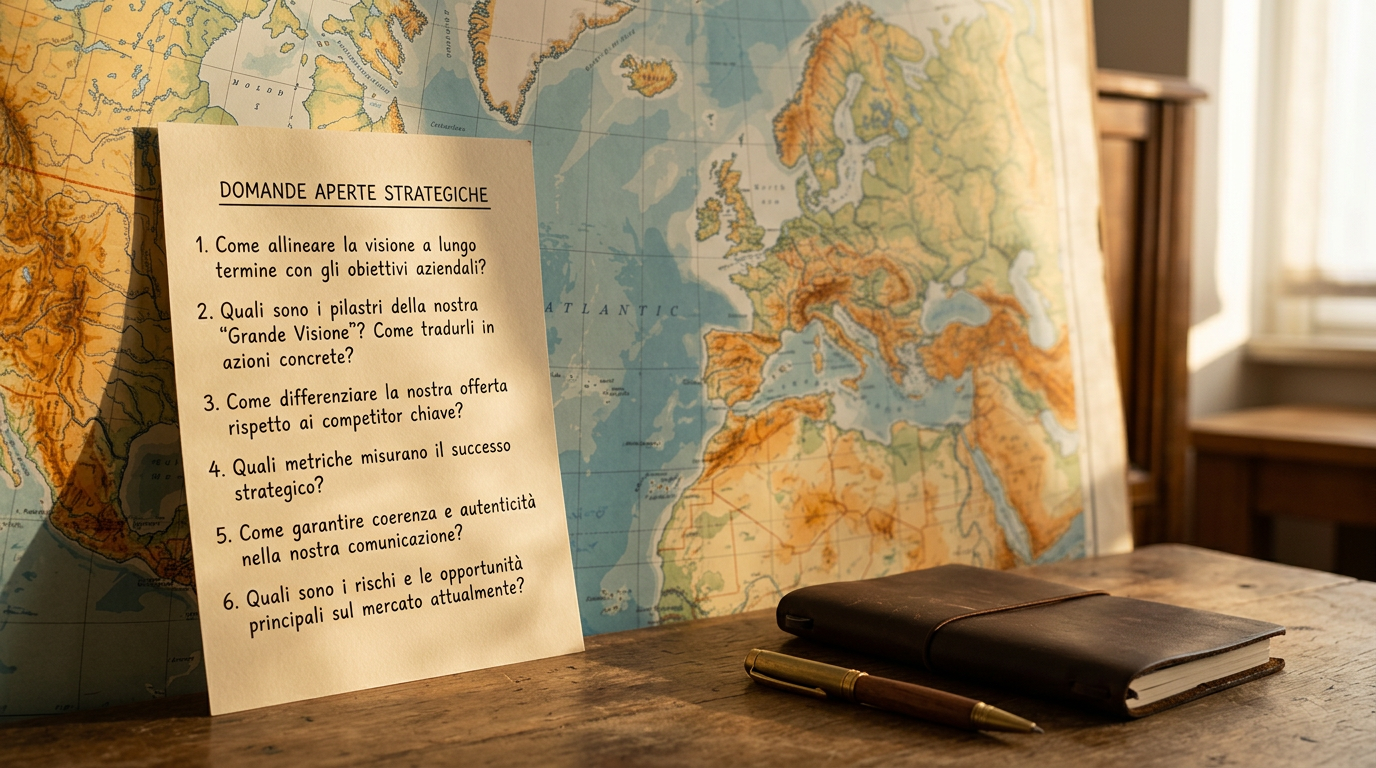 DOMANDE APERTE STRATEGICHE
1. Come allineare la visione a lungo
termine con gli obiettivi aziendali?
2. Quali sono i pilastri della nostra
“Grande Visione”? Come tradurli in
azioni concrete?
3. Come differenziare la nostra offerta
rispetto ai competitor chiave?
4. Quali metriche misurano il successo
strategico?
5. Come garantire coerenza e autenticità
nella nostra comunicazione?
6. Quali sono i rischi e le opportunità
principali sul mercato attualmente?
ATLANTIC
North